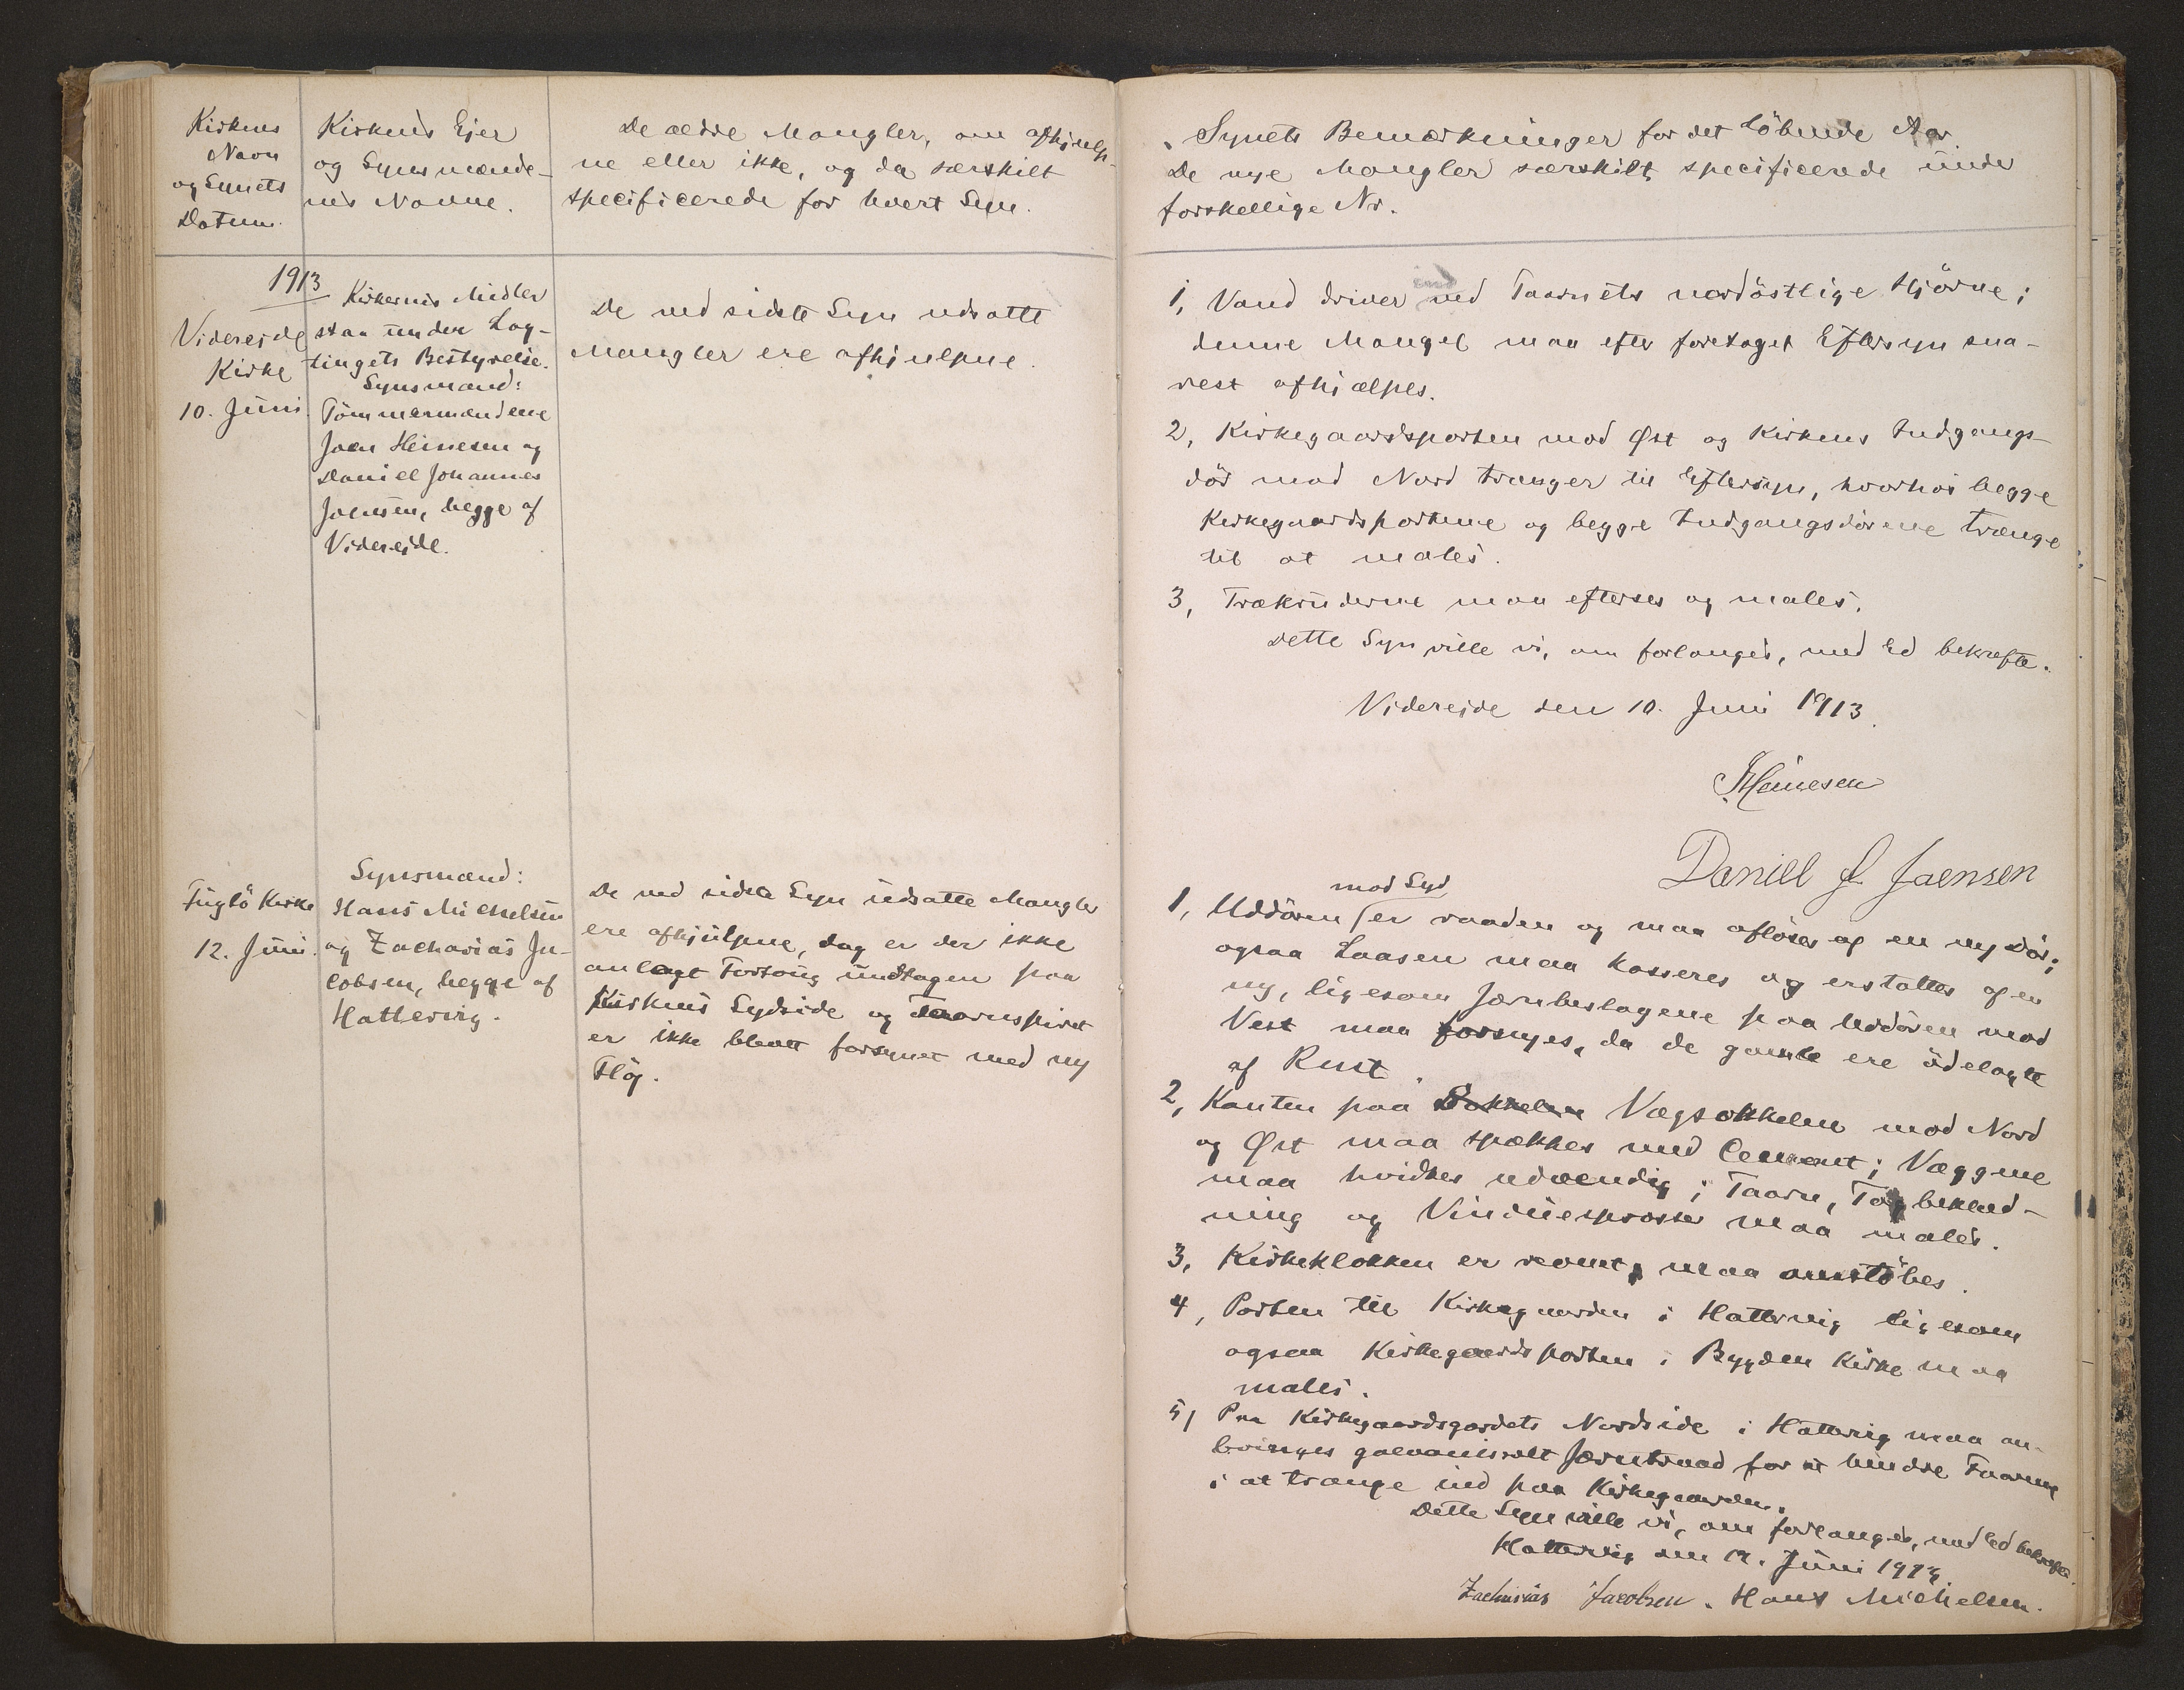 Kirkens
Navn
og Synets
Datum.
Kirkens Ejer
og Synsmænde-
nes Navne.
De ældre Mangler, om afhjulp-
ne eller ikke, og da særskilt
specificerede for hvert Syn.
1913
Videreide
Kirke
10. Juni.
Kirkernes Midler
staa under Lag-
tingets Bestyrelse.
Synsmænd:
Tömmermændene
Joen Heinesen og
Daniel Johannes
Joensen, begge af
Videreide.
De ved sidste Syn udsatte
Mangler ere afhjulpne.
Fuglö Kirke
12. Juni.
Synsmænd:
Hans Michelsen
og Zacharias Ja-
cobsen, begge af
Hattervig.
De ved sidste Syn udsatte Mangler
ere afhjulpne, dog er der ikke
anlagt Fortoug undtagen paa
Kirkens Sydside og Taarnspiret
er ikke blevet forsynet med ny
Flöj.
Synets Bemærkninger for det löbende Aar.
De nye Mangler særskilt specificerede under
forskellige Nr.
1, Vand driver ned Taarnets nordöstlige Hjörne;
denne Mangel maa efter foretaget Eftersyn sna-
rest afhjælpes.
2, Kirkegaardsporten mod Øst og Kirkens Indgangs-
dör mod Nord trænger til Eftersyn, hvorhos begge
Kirkegaardsportene og begge Indgangsdörene trænge
til at males.
3, Trækruderne maa efterses og males.
Dette Syn ville vi, om forlanges, med Ed bekræfte.
Videreide den 10. Juni 1913.
J Heinesen
Daniel J. Joensen
mod Syd
1, Uddören er raaden og maa aflöses af en ny Dör;
ogsaa Laasen maa kasseres og erstattes af en
ny, ligesom Jærnbeslagene paa Uddören mod
Vest maa fornyes, da de gamle ere ödelagte
af Rust.
2, Kanten paa Sokkelen Vægsokkelen mod Nord
og Øst maa spækkes med Cement; Væggene
maa hvidtes udvendig; Taarn, Tagbeklæd-
ning og Vinduesprosser maa males.
3, Kirkeklokken er revnet, maa omstöbes.
4, Porten til Kirkegaarden i Hattervig ligesom
ogsaa Kirkegaardsporten i Bygden Kirke maa
males.
5, Paa Kirkegaardsgærdets Nordside i Hattervig maa an-
bringes galvaniseret Jærntraad for at hindre Faarene
i at trænge ind paa Kirkegaarden.
Dette Syn ville vi, om forlanges, med Ed bekræfte.
Hattervig den 12. Juni 1913.
Zacharias Jacobsen. Hans Michelsen.